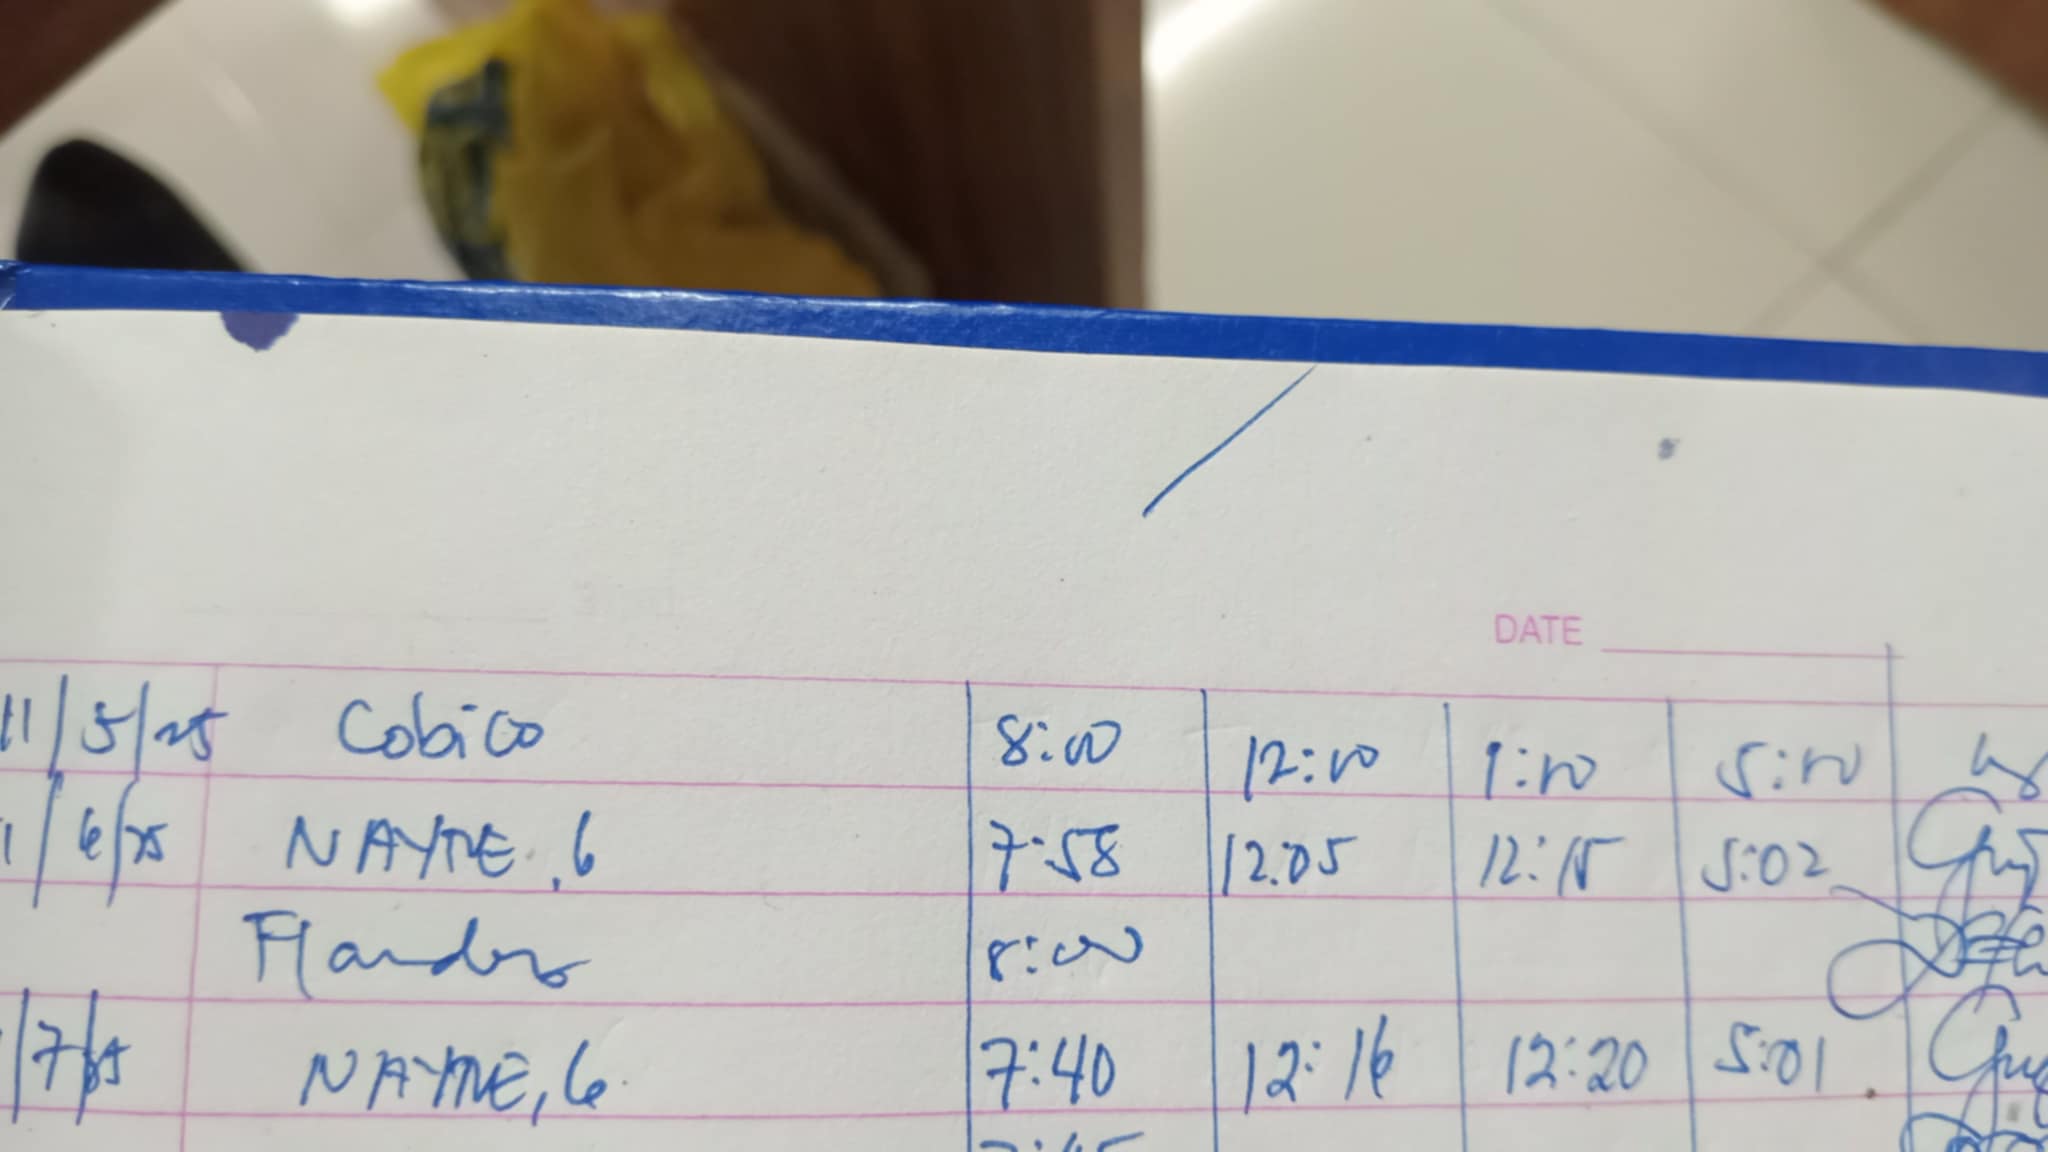 DATE
11/5/25 Cobico 8:00 12:00 1:00 5:00
1/6/25 NAYRE, G 7:58 12:05 12:15 5:02
Flandes 8:00
/7/25 NAYRE, G. 7:40 12:16 12:20 5:01
7:45